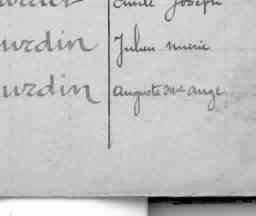 Émile Joseph
urdin Julien Marie
urdin Auguste Mie Ange